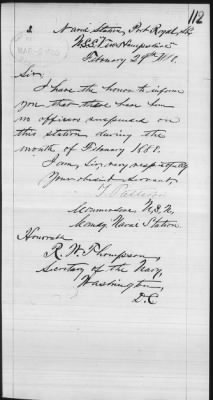 112
Naval Station, Port Royal, S.C.
U.S.S. New Hampshire
February 29th 1881.
Sir,
I have the honor to inform
you that there have been
no officers suspended on
this station during the
month of February 1881.
I am, Sir, very respectfully
Your obedient Servant,
Commodore U.S.N.
Comdg. Naval Station.
Honorable
R. W. Thompson,
Secretary of the Navy,
Washington,
D.C.